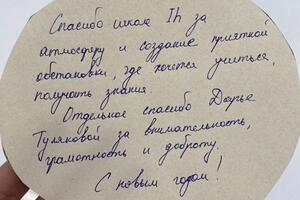 Спасибо школе Ih за
атмосферу и создание приятной
обстановки, где хочется учиться,
получать знания.
Отдельное спасибо Дарье
Туляковой за внимательность,
грамотность и доброту.
С новым годом!